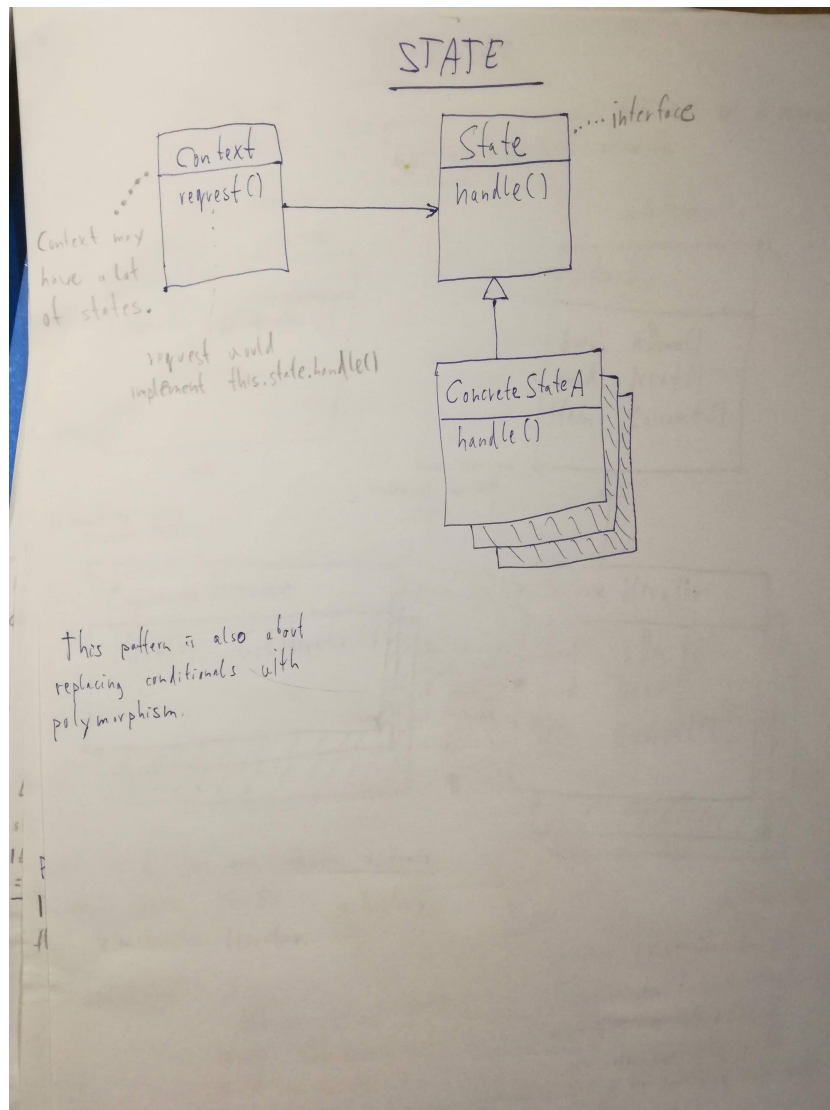 STATE
Context
request()
State
handle()
interface
Context may
have a lot
of states.
request would
implement this.state.handle()
ConcreteStateA
handle()
This pattern is also about
replacing conditionals with
polymorphism.